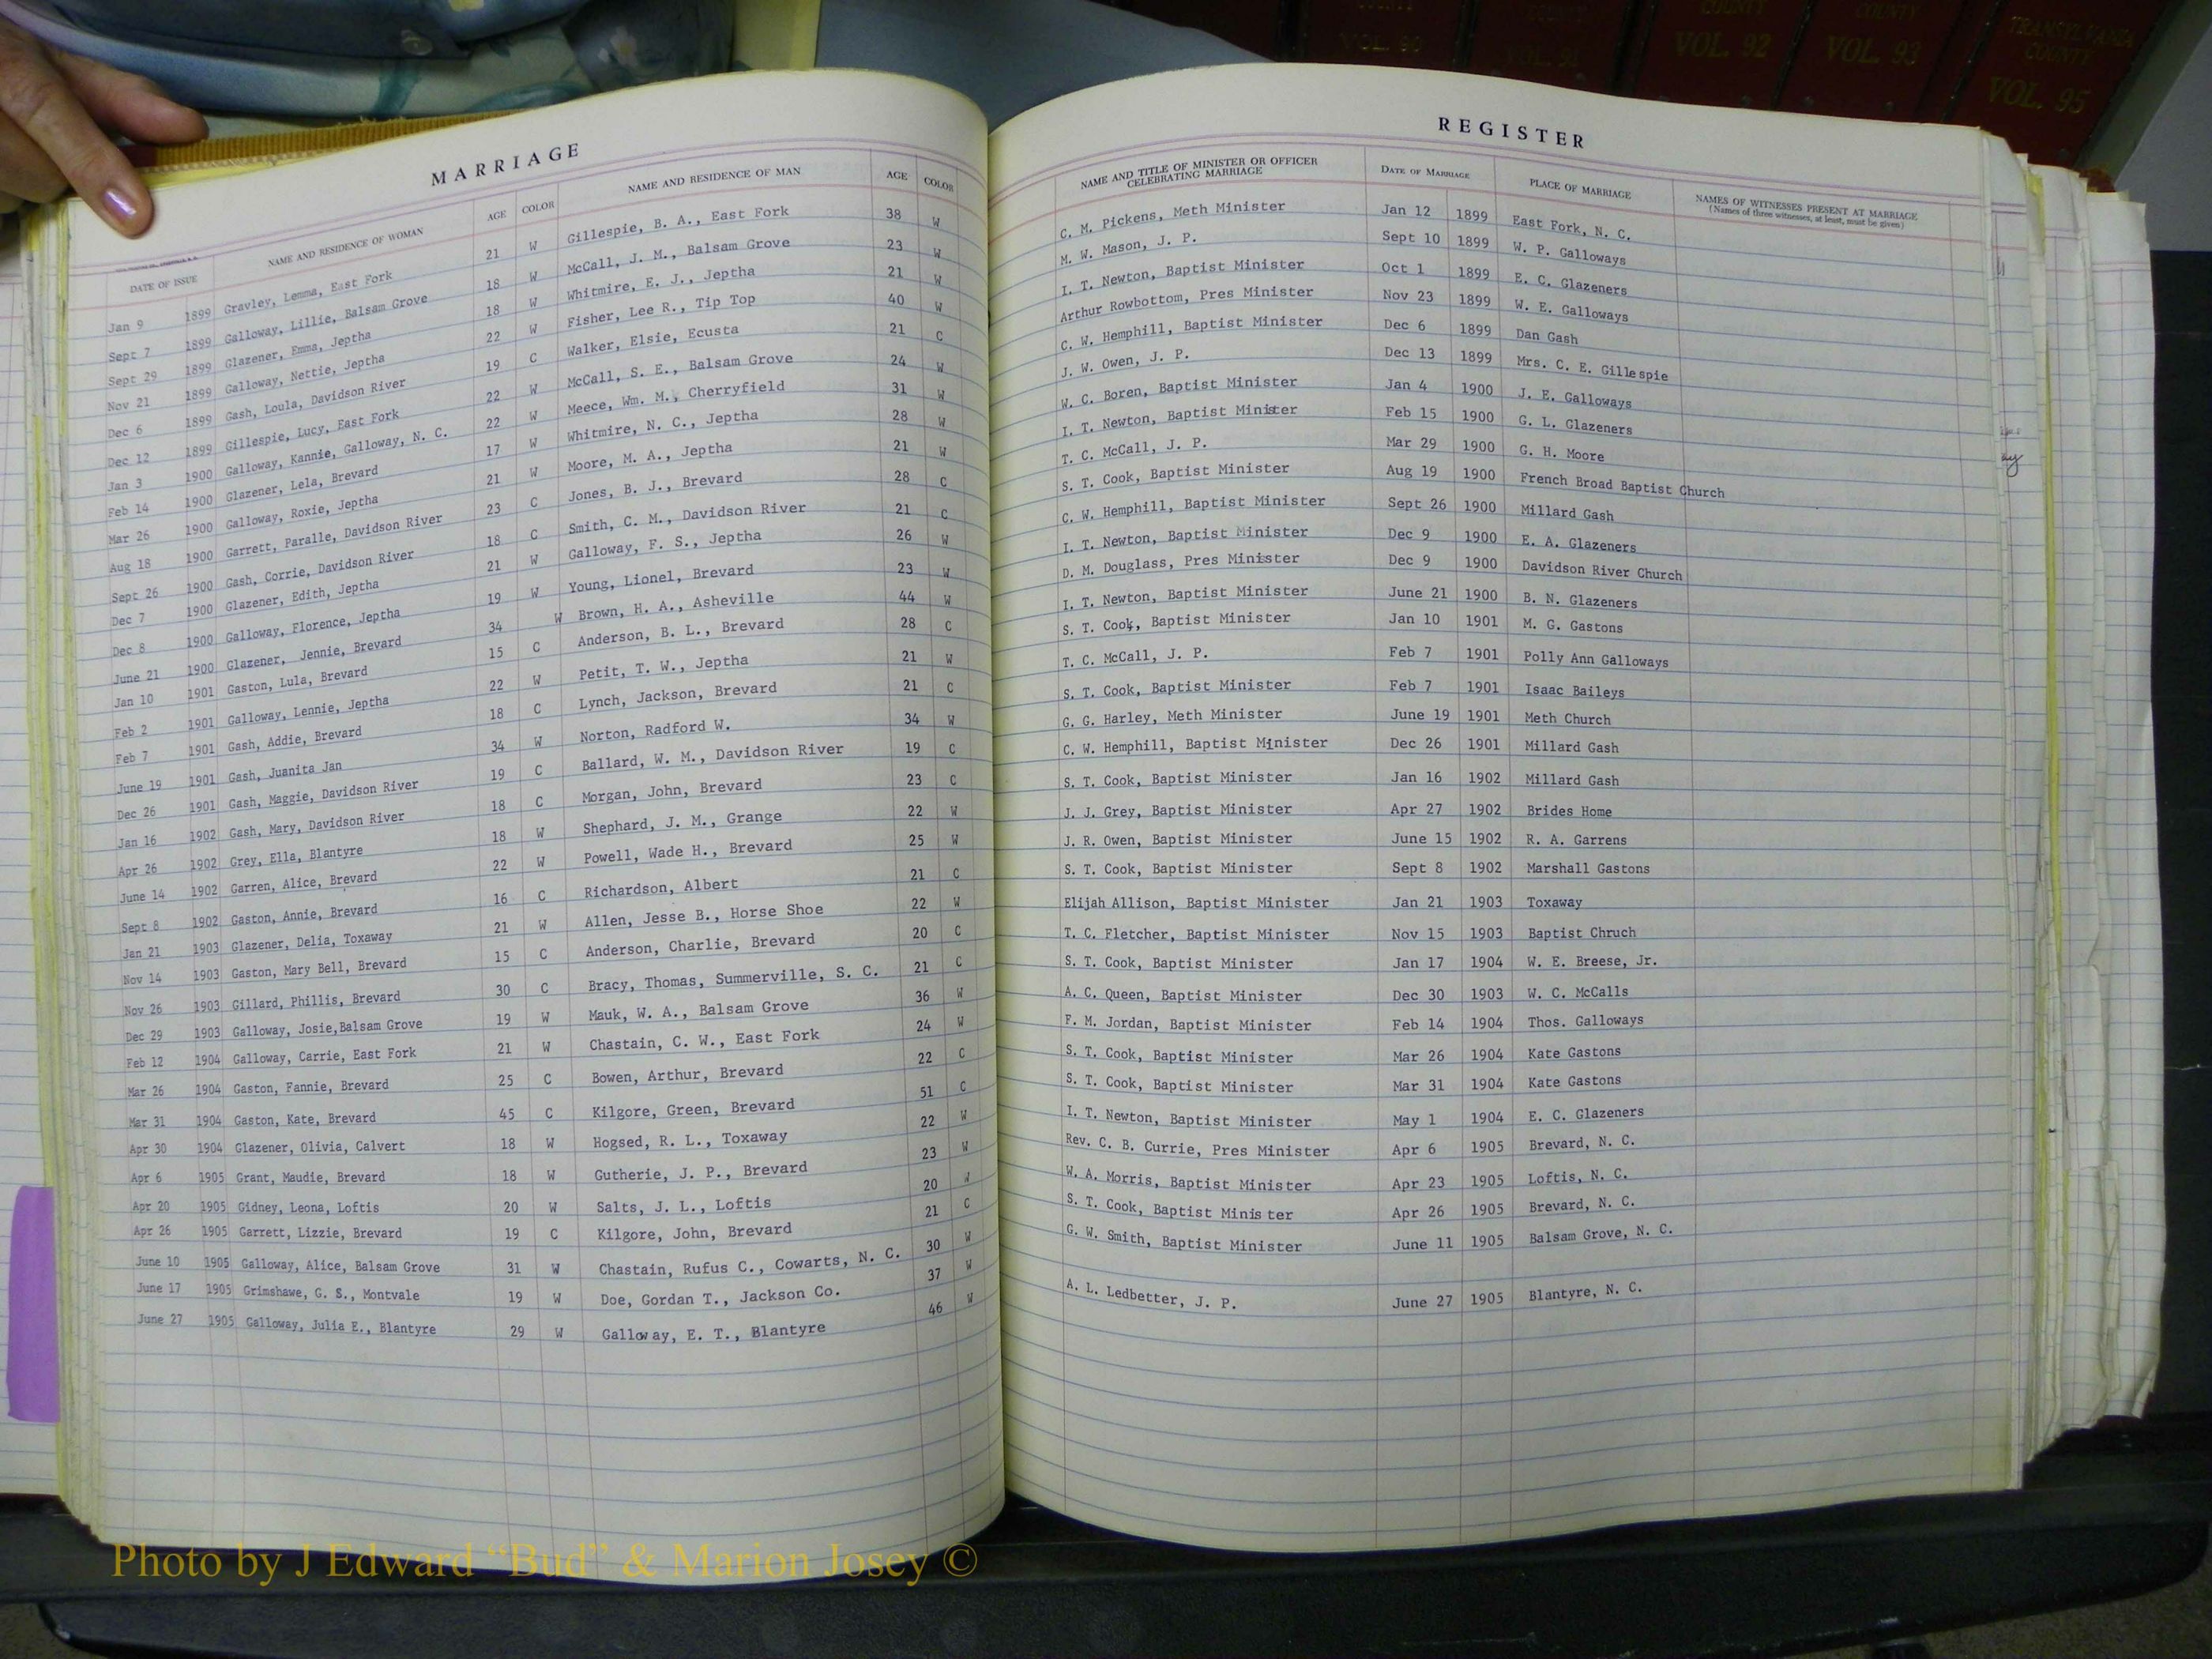 COUNTY VOL. 90
VOL. 91
COUNTY VOL. 92
COUNTY VOL. 93
TRANSYLVANIA COUNTY VOL. 95
MARRIAGE
DATE OF ISSUE NAME AND RESIDENCE OF WOMAN AGE COLOR NAME AND RESIDENCE OF MAN AGE COLOR
Jan 9 1899 Gravley, Lemma, East Fork 21 W Gillespie, B. A., East Fork 38 W
Sept 7 1899 Galloway, Lillie, Balsam Grove 18 W McCall, J. M., Balsam Grove 23 W
Sept 29 1899 Glazener, Emma, Jeptha 18 W Whitmire, E. J., Jeptha 21 W
Nov 21 1899 Galloway, Nettie, Jeptha 22 W Fisher, Lee R., Tip Top 40 W
Dec 6 1899 Gash, Loula, Davidson River 19 C Walker, Elsie, Ecusta 21 C
Dec 12 1899 Gillespie, Lucy, East Fork 22 W McCall, S. E., Balsam Grove 24 W
Jan 3 1900 Galloway, Kannie, Galloway, N. C. 22 W Meece, Wm. M., Cherryfield 31 W
Feb 14 1900 Glazener, Lela, Brevard 17 W Whitmire, N. C., Jeptha 28 W
Mar 26 1900 Galloway, Roxie, Jeptha 21 W Moore, M. A., Jeptha 21 W
Aug 18 1900 Garrett, Paralle, Davidson River 23 C Jones, B. J., Brevard 28 C
Sept 26 1900 Gash, Corrie, Davidson River 18 C Smith, C. M., Davidson River 21 C
Dec 7 1900 Glazener, Edith, Jeptha 21 W Galloway, F. S., Jeptha 26 W
Dec 8 1900 Galloway, Florence, Jeptha 19 W Young, Lionel, Brevard 23 W
June 21 1900 Glazener, Jennie, Brevard 34 W Brown, H. A., Asheville 44 W
Jan 10 1901 Gaston, Lula, Brevard 15 C Anderson, B. L., Brevard 28 C
Feb 2 1901 Galloway, Lennie, Jeptha 22 W Petit, T. W., Jeptha 21 W
Feb 7 1901 Gash, Addie, Brevard 18 C Lynch, Jackson, Brevard 21 C
June 19 1901 Gash, Juanita Jan 34 W Norton, Radford W. 34 W
Dec 26 1901 Gash, Maggie, Davidson River 19 C Ballard, W. M., Davidson River 19 C
Jan 16 1902 Gash, Mary, Davidson River 18 C Morgan, John, Brevard 23 C
Apr 26 1902 Grey, Ella, Blantyre 18 W Shephard, J. M., Grange 22 W
June 14 1902 Garren, Alice, Brevard 22 W Powell, Wade H., Brevard 25 W
Sept 8 1902 Gaston, Annie, Brevard 16 C Richardson, Albert 21 C
Jan 21 1903 Glazener, Delia, Toxaway 21 W Allen, Jesse B., Horse Shoe 22 W
Nov 14 1903 Gaston, Mary Bell, Brevard 15 C Anderson, Charlie, Brevard 20 C
Nov 26 1903 Gillard, Phillis, Brevard 30 C Bracy, Thomas, Summerville, S. C. 21 C
Dec 29 1903 Galloway, Josie,Balsam Grove 19 W Mauk, W. A., Balsam Grove 36 W
Feb 12 1904 Galloway, Carrie, East Fork 21 W Chastain, C. W., East Fork 24 W
Mar 26 1904 Gaston, Fannie, Brevard 25 C Bowen, Arthur, Brevard 22 C
Mar 31 1904 Gaston, Kate, Brevard 45 C Kilgore, Green, Brevard 51 C
Apr 30 1904 Glazener, Olivia, Calvert 18 W Hogsed, R. L., Toxaway 22 W
Apr 6 1905 Grant, Maudie, Brevard 18 W Gutherie, J. P., Brevard 23 W
Apr 20 1905 Gidney, Leona, Loftis 20 W Salts, J. L., Loftis 20 W
Apr 26 1905 Garrett, Lizzie, Brevard 19 C Kilgore, John, Brevard 21 C
June 10 1905 Galloway, Alice, Balsam Grove 31 W Chastain, Rufus C., Cowarts, N. C. 30 W
June 17 1905 Grimshawe, G. S., Montvale 19 W Doe, Gordan T., Jackson Co. 37 W
June 27 1905 Galloway, Julia E., Blantyre 29 W Galloway, E. T., Blantyre 46 W
REGISTER
NAME AND TITLE OF MINISTER OR OFFICER CELEBRATING MARRIAGE DATE OF MARRIAGE PLACE OF MARRIAGE NAMES OF WITNESSES PRESENT AT MARRIAGE
(Names of three witnesses, at least, must be given)
C. M. Pickens, Meth Minister Jan 12 1899 East Fork, N. C.
M. W. Mason, J. P. Sept 10 1899 W. P. Galloways
I. T. Newton, Baptist Minister Oct 1 1899 E. C. Glazeners
Arthur Rowbottom, Pres Minister Nov 23 1899 W. E. Galloways
C. W. Hemphill, Baptist Minister Dec 6 1899 Dan Gash
J. W. Owen, J. P. Dec 13 1899 Mrs. C. E. Gillespie
W. C. Boren, Baptist Minister Jan 4 1900 J. E. Galloways
I. T. Newton, Baptist Minister Feb 15 1900 G. L. Glazeners
T. C. McCall, J. P. Mar 29 1900 G. H. Moore
S. T. Cook, Baptist Minister Aug 19 1900 French Broad Baptist Church
C. W. Hemphill, Baptist Minister Sept 26 1900 Millard Gash
I. T. Newton, Baptist Minister Dec 9 1900 E. A. Glazeners
D. M. Douglass, Pres Minister Dec 9 1900 Davidson River Church
I. T. Newton, Baptist Minister June 21 1900 B. N. Glazeners
S. T. Cook, Baptist Minister Jan 10 1901 M. G. Gastons
T. C. McCall, J. P. Feb 7 1901 Polly Ann Galloways
S. T. Cook, Baptist Minister Feb 7 1901 Isaac Baileys
G. G. Harley, Meth Minister June 19 1901 Meth Church
C. W. Hemphill, Baptist Minister Dec 26 1901 Millard Gash
S. T. Cook, Baptist Minister Jan 16 1902 Millard Gash
J. J. Grey, Baptist Minister Apr 27 1902 Brides Home
J. R. Owen, Baptist Minister June 15 1902 R. A. Garrens
S. T. Cook, Baptist Minister Sept 8 1902 Marshall Gastons
Elijah Allison, Baptist Minister Jan 21 1903 Toxaway
T. C. Fletcher, Baptist Minister Nov 15 1903 Baptist Chruch
S. T. Cook, Baptist Minister Jan 17 1904 W. E. Breese, Jr.
A. C. Queen, Baptist Minister Dec 30 1903 W. C. McCalls
F. M. Jordan, Baptist Minister Feb 14 1904 Thos. Galloways
S. T. Cook, Baptist Minister Mar 26 1904 Kate Gastons
S. T. Cook, Baptist Minister Mar 31 1904 Kate Gastons
I. T. Newton, Baptist Minister May 1 1904 E. C. Glazeners
Rev. C. B. Currie, Pres Minister Apr 6 1905 Brevard, N. C.
W. A. Morris, Baptist Minister Apr 23 1905 Loftis, N. C.
S. T. Cook, Baptist Minister Apr 26 1905 Brevard, N. C.
G. W. Smith, Baptist Minister June 11 1905 Balsam Grove, N. C.
A. L. Ledbetter, J. P. June 27 1905 Blantyre, N. C.
Photo by J Edward “Bud” & Marion Josey ©